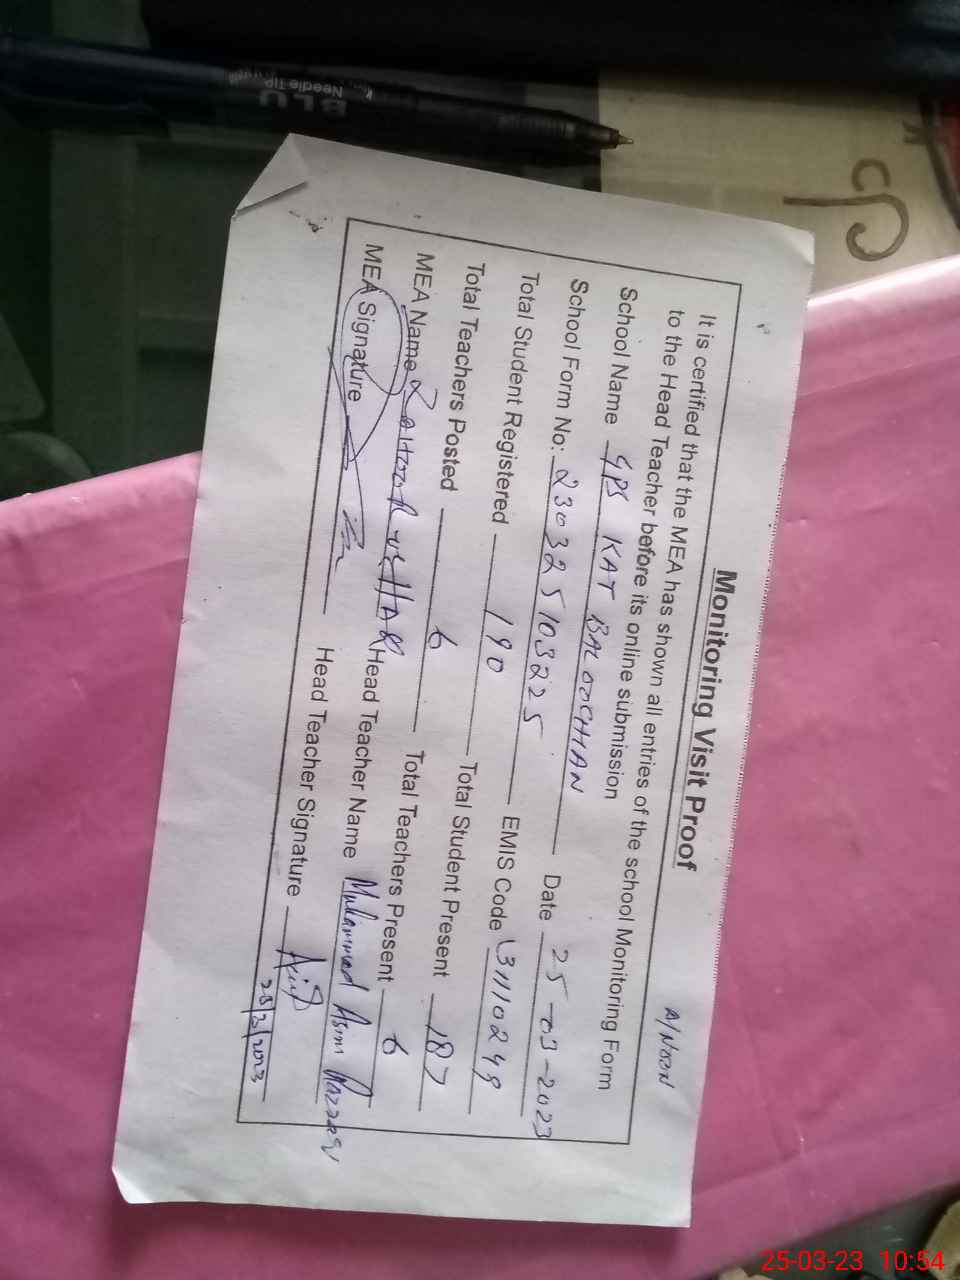 Monitoring Visit Proof
A/Noon
It is certified that the MEA has shown all entries of the school Monitoring Form
to the Head Teacher before its online submission
School Name GPS KAT BALOOCHAN Date 25-03-2023
School Form No: 230325103225 EMIS Code 31110249
Total Student Registered 190 Total Student Present 187
Total Teachers Posted 6 Total Teachers Present 6
MEA Name HAQ Head Teacher Name Muhammad Asim
MEA Signature Head Teacher Signature Asim
25/3/2023
BLU
Needle Tip
25-03-23 10:54